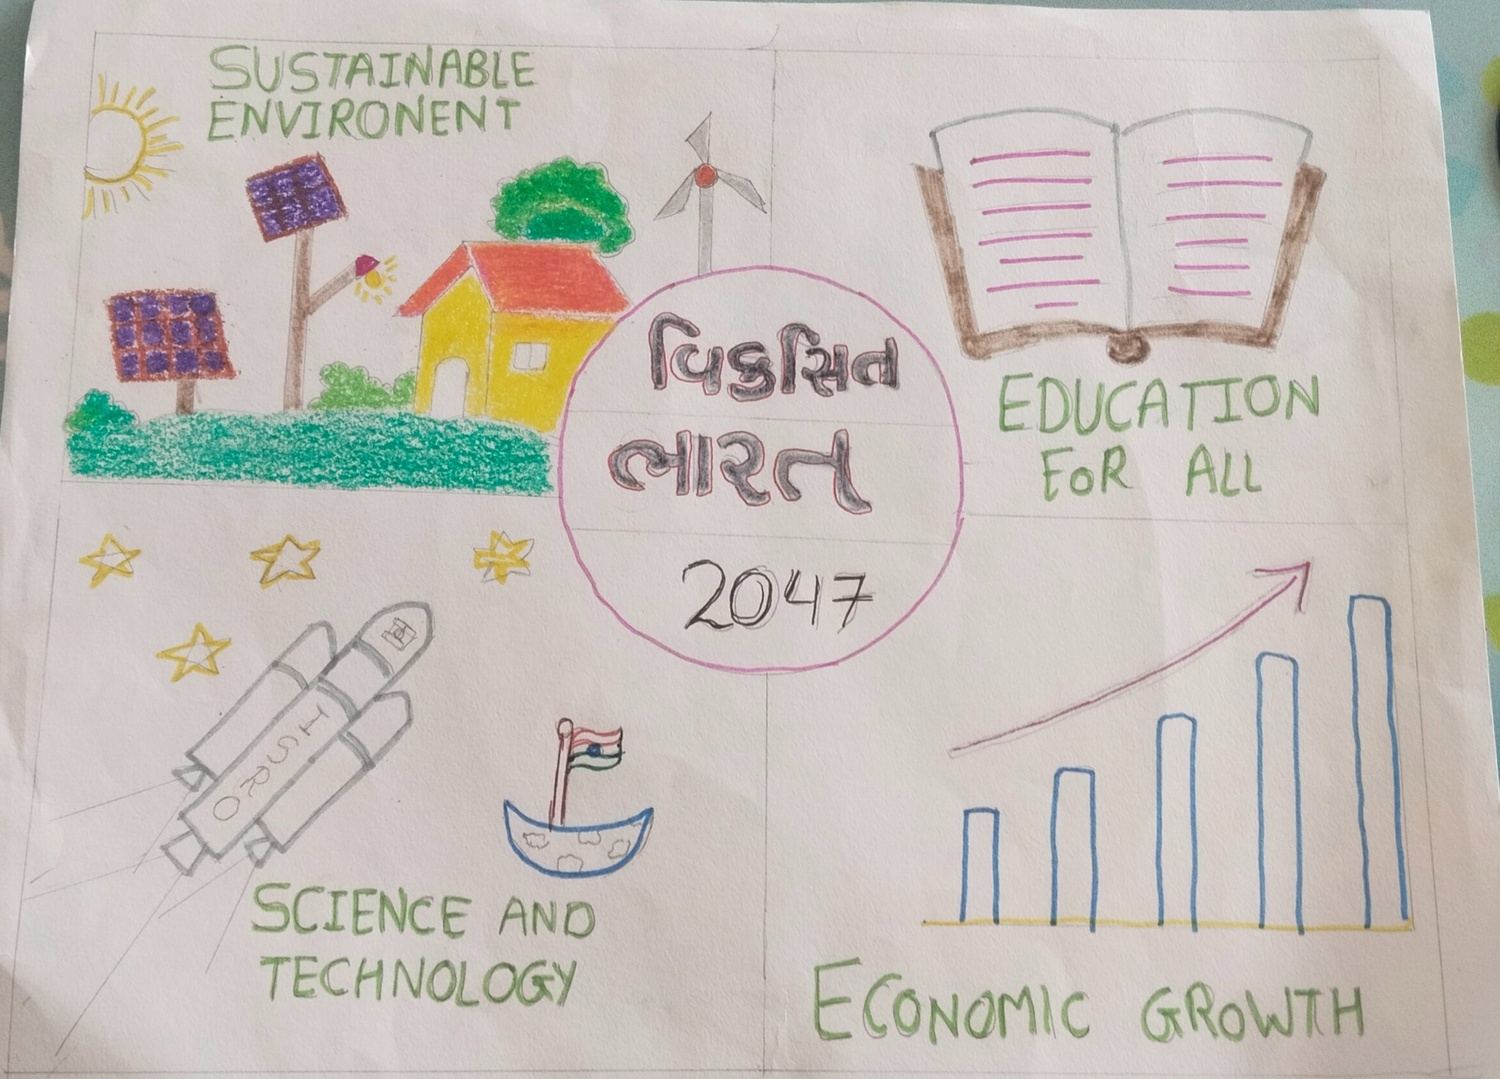 SUSTAINABLE
ENVIRONENT
વિકસિત
ભારત
2047
EDUCATION
FOR ALL
ISRO
SCIENCE AND
TECHNOLOGY
ECONOMIC GROWTH